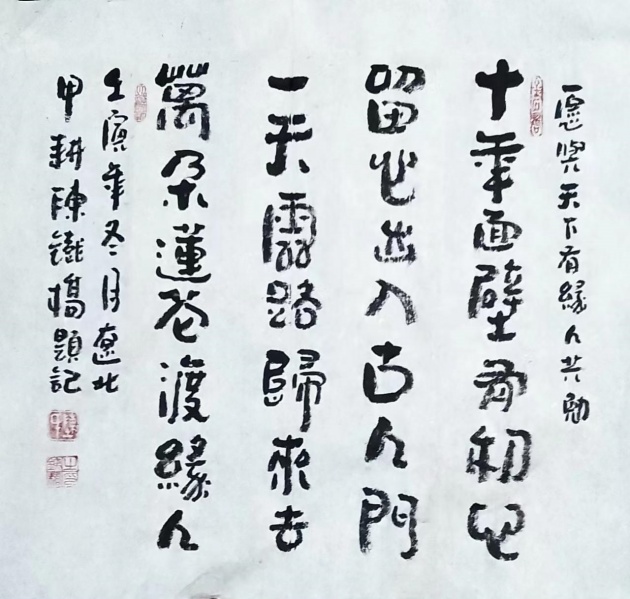 愿與天下有緣人共勉
十年面壁有初
留出入古人門
一天路歸來去
萬朵蓮花渡緣人
壬寅年冬月遼北
甲耕陳鐵橋題記